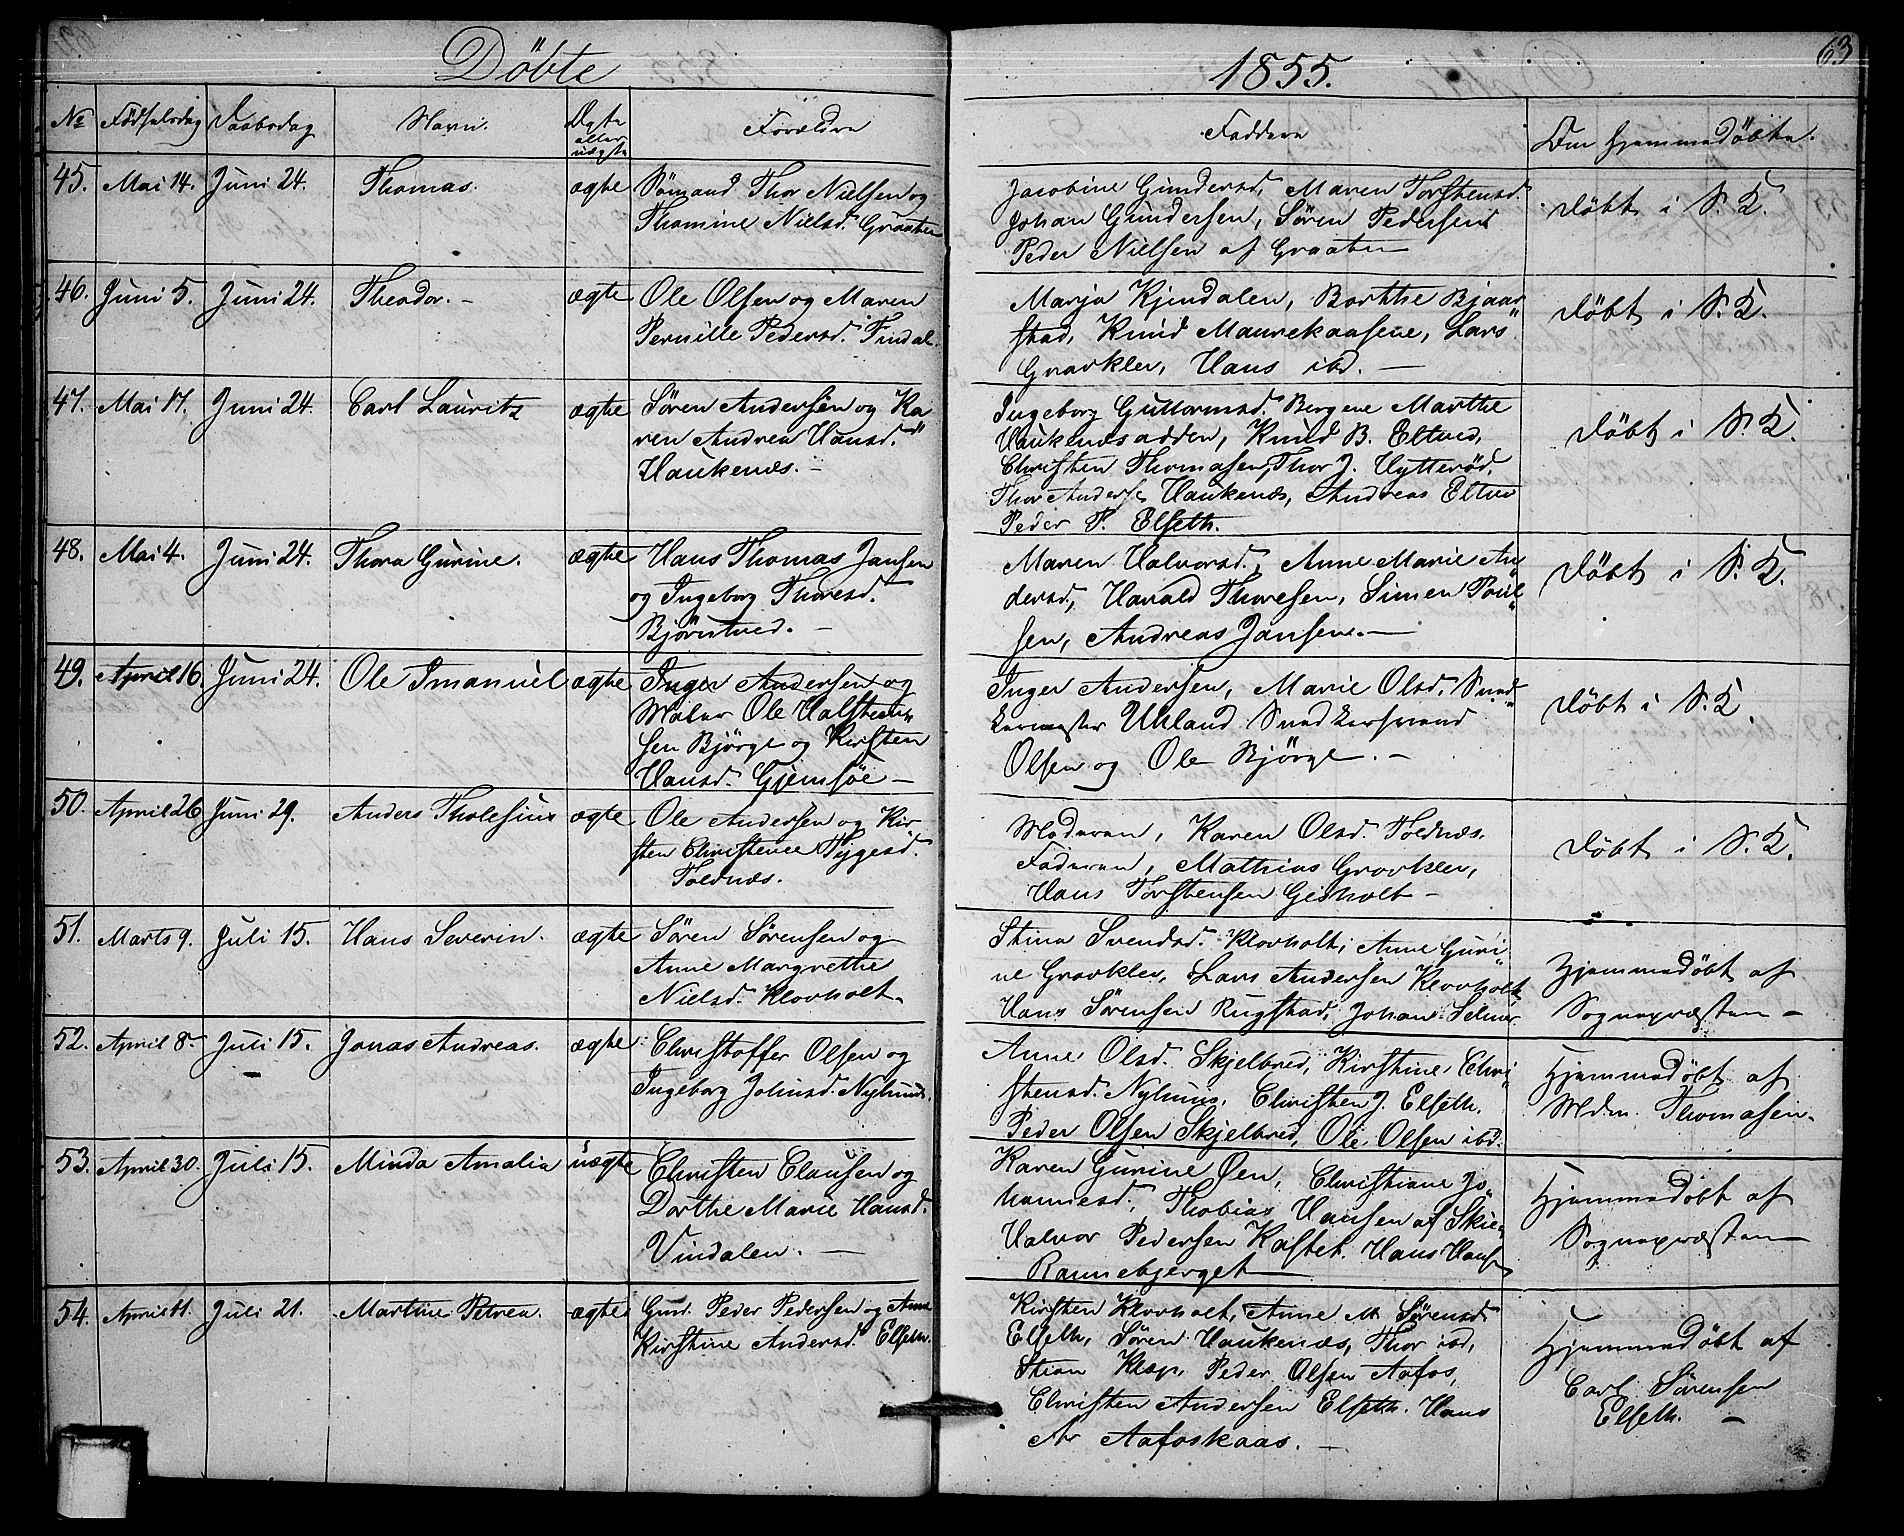 Döbte
1855.
63
No Födselsdag Daabsdag Navn. Ægte eller uægte Forældre
Faddere Om hjemmedöbte.
45. Mai 14. Juni 24. Thomas. ægte Sömand Thor Nielsen og
Thomine Nielsd. Graaten
Jacobine Gundersd, Maren Torstensd.
Johan Gundersen, Sören Pedersen
Peder Nielsen af Graaten
Döbt i S. K.
46. Juni 5. Juni 24. Theodor. – ægte Ole Olsen og Maren
Pernille Pedersd. Findal.
Marja Kjendalen, Barthe Bjaar"
stad, Knud Maurekaasene, Lars
Gravklev, Hans ibd. –
Döbt i S. K.
47. Mai 17. Juni 24. Carl Lauritz ægte Sören Andersen og Ka"
ren Andrea Hansd.
Haukenæs. –
Ingeborg Guttormsd. Bergene Marthe
Haukenæsodden, Knud B. Eltved,
Christen Thomasen, Thor J. Hytteröd,
Thor Anders. Haukenæs, Andreas Eltve
Peder P. Elseth.
Döbt i S. K.
48. Mai 4. Juni 24. Thora Gurine. ægte Hans Thomas Jansen
og Ingeborg Thoresd.
Björntved. –
Maren Halvorsd., Anne Marie An"
dersd., Harald Thoresen, Simen Poul"
sen, Andreas Jansen. –
Döbt i S. K.
49. April 16. Juni 24. Ole Imanuel ægte Inger Andersen og
Maler Ole Halsten"
sen Björge og Kirsten
Hansd. Gjemsöe –
Inger Andersen, Marie Olsd. Sned"
kermester Uhland Snedkersvend
Olsen og Ole Björge. –
Döbt i S. K.
50. April 26 Juni 29. Anders Tholesius ægte Ole Andersen og Kir"
sten Christence Tygesd.
Toldnæs.
Moderen, Karen Olsd. Toldnæs.
Faderen, Mathias Gravklev,
Hans Torstensen Gisholt –
Döbt i S. K.
51. Marts 9. Juli 15. Hans Severin. ægte Sören Sörensen og
Anne Margrethe
Nielsd. Klovholt.
Stina Svendsd. Klovholt, Anne Guri"
ne Gravklev, Lars Andersen Klovholt,
Hans Sörensen Rugstad, Johan Selmer
Hjemmedöbt af
Sognepræsten –
52. April 8. Juli 15. Jonas Andreas. ægte Christoffer Olsen og
Ingeborg Johnsd. Nyhuus.
Anne Olsd. Skjelbred, Kirstine Chri"
stensd. Nyhuus, Christen J. Elseth.
Peder Olsen Skjelbred, Ole Olsen ibd.
Hjemmedöbt af
Mdm. Thomasen.
53. April 30. Juli 15. Minda Amalia uægte Christen Clausen og
Dorthe Marie Hansd.
Vindalen. –
Karen Gurine Øen, Christiane Jo"
hannesd., Thobias Hansen af Skien
Halvor Pedersen Kastet. Hans Hans
Rannebjerget
Hjemmedöbt af
Sognepræsten
54. April 11. Juli 21. Martine Petrea. ægte Peder Pedersen og Anne
Kirstine Andersd. Elseth.
Kirsten Klovholt, Anne M. Sörensd.
Elseth, Sören Haukenæs, Thor ibd,
Stian Klep, Peder Olsen Aafos,
Christen Andersen Elseth. Hans
Aafoskaas. –
Hjemmedöbt af
Carl Sörensen
Elseth. –